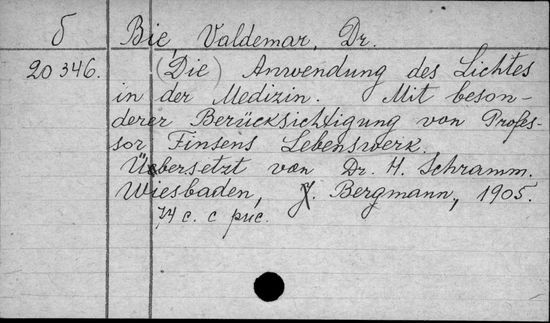 б Bie, Valdemar, Dr.
20346. (Die) Anwendung des Lichtes
in der Medizin. Mit beson-
derer Berücksichtigung von Profes-
sor Finsens Lebenswerk.
Übersetzt von Dr. H. Schramm.
Wiesbaden, J. Bergmann, 1905.
74 с. с рис.